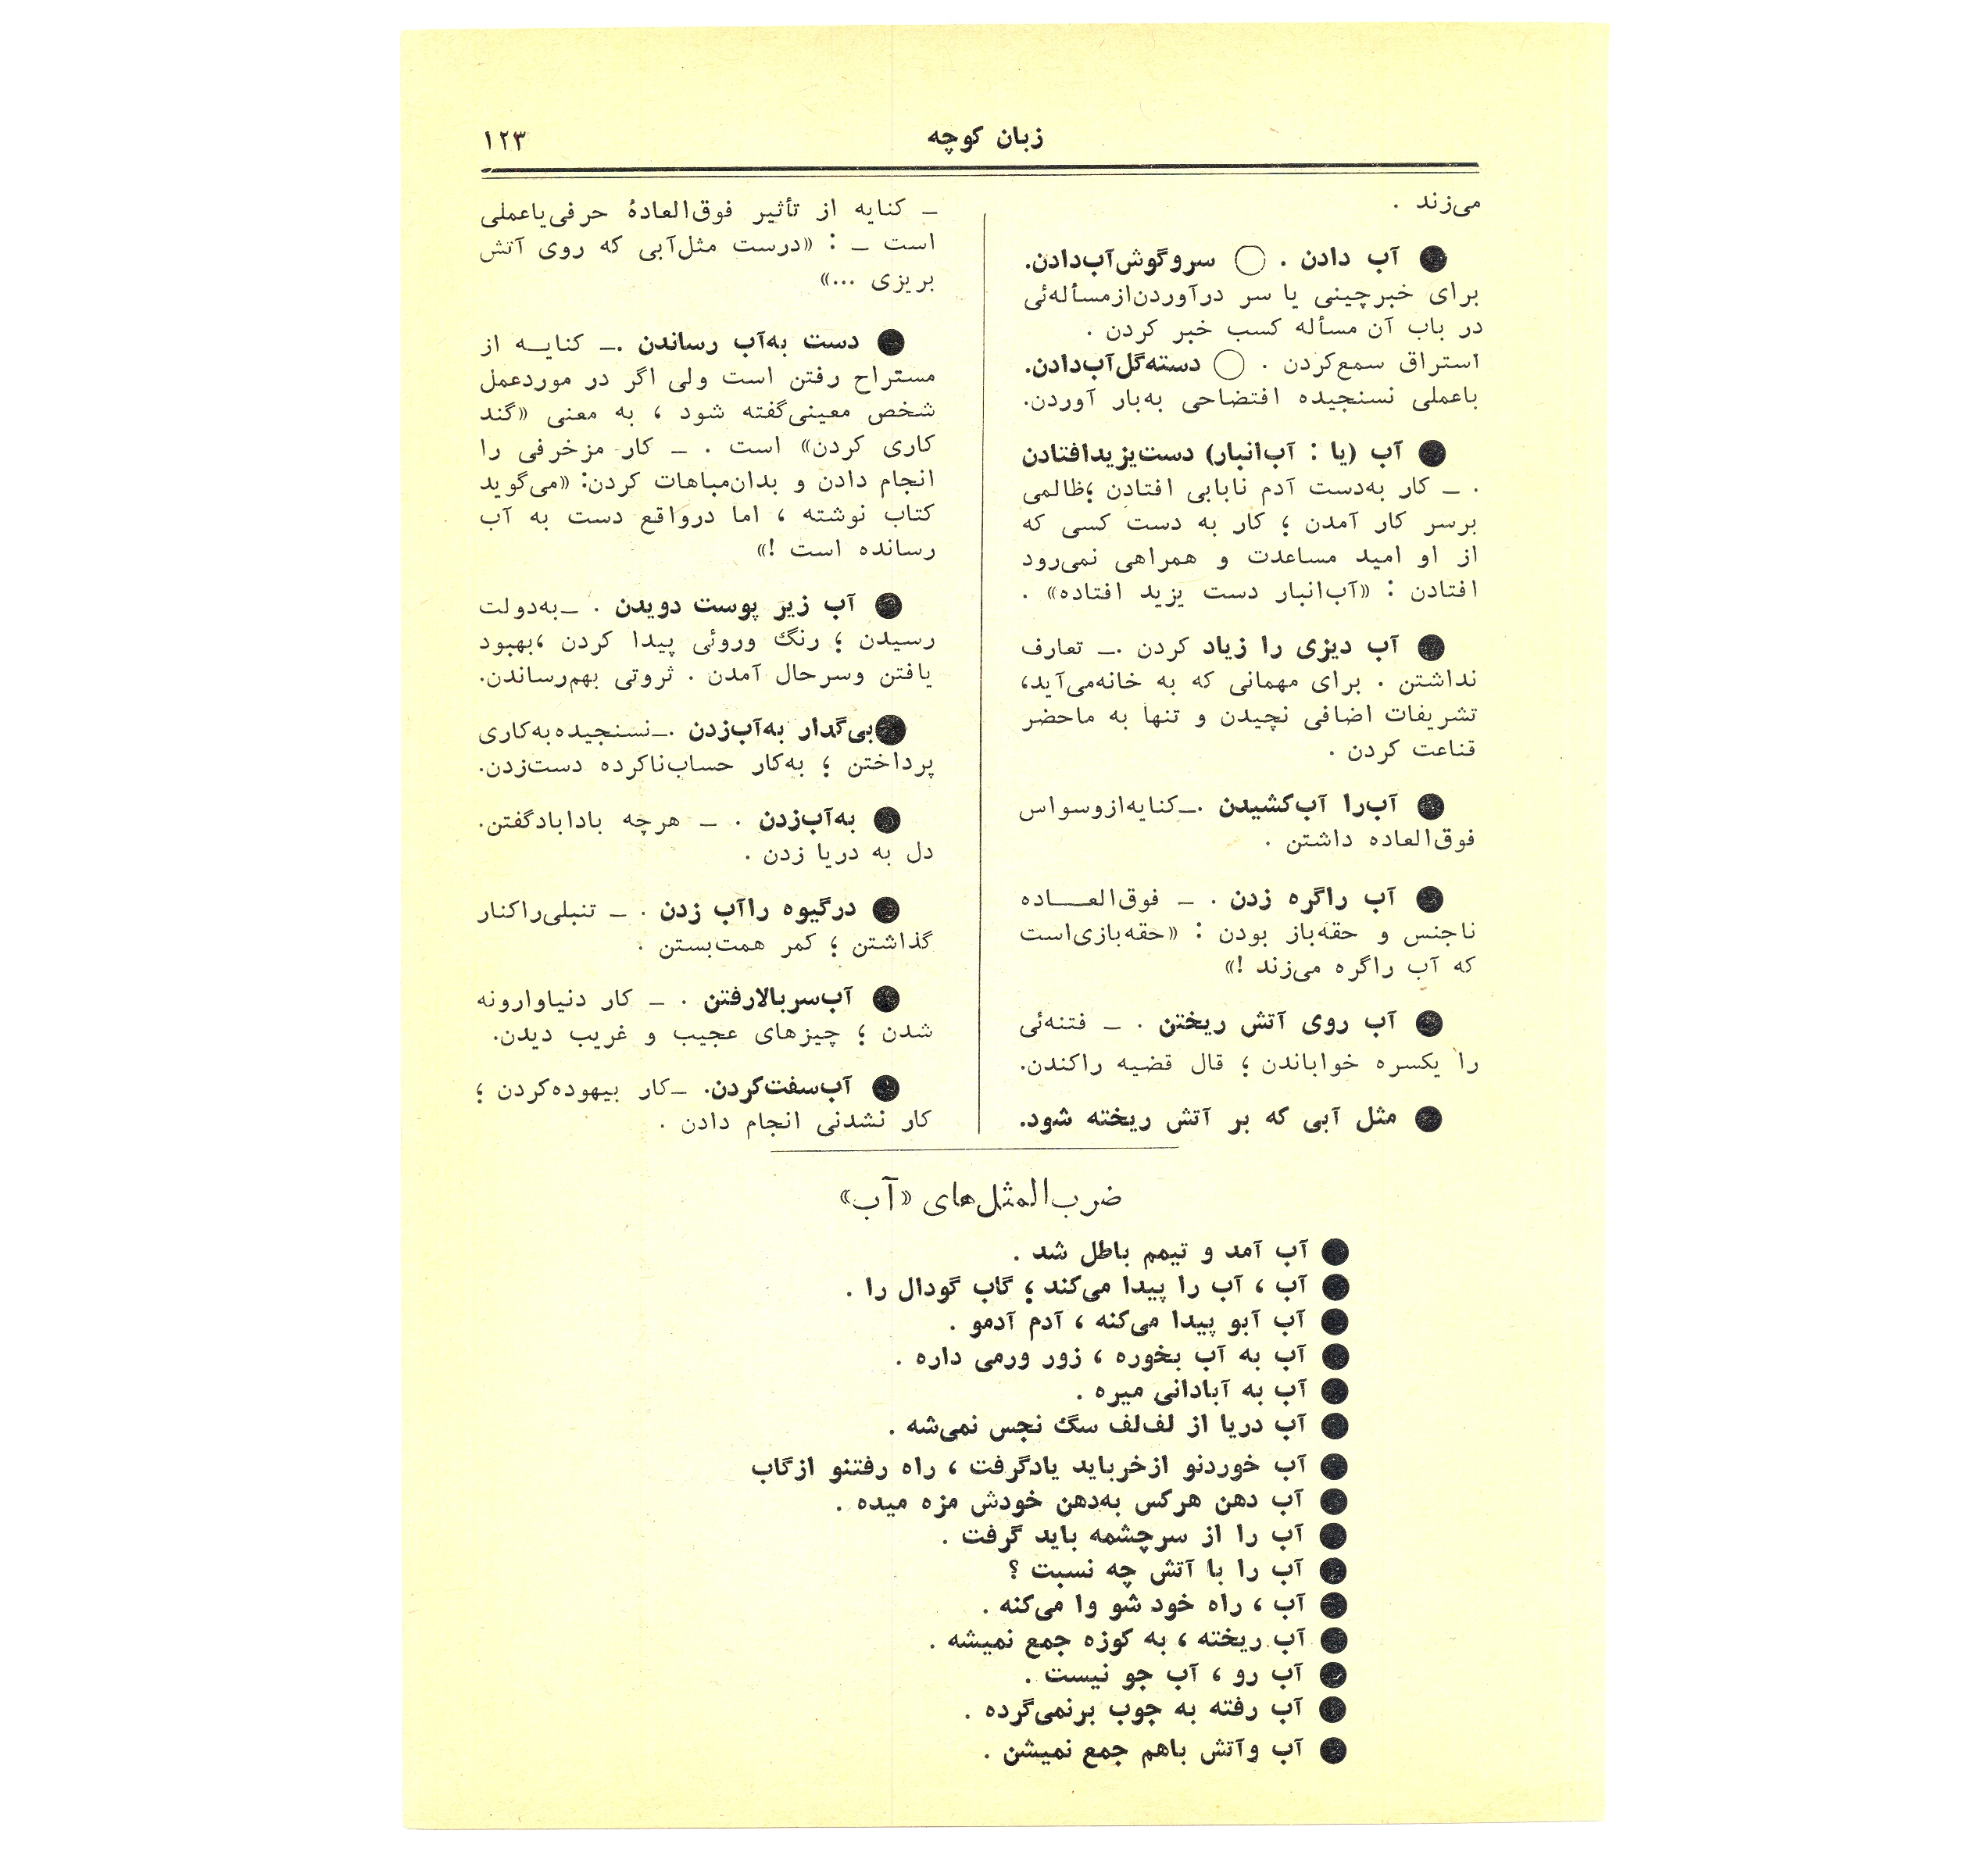 زبان کوچه
۱۲۳
می‌زند .
● آب دادن . ○ سروگوش‌آب‌دادن.
برای خبرچینی یا سر درآوردن‌ازمسأله‌ئی
در باب آن مسأله کسب خبر کردن .
استراق سمع‌کردن . ○ دسته‌گل‌آب‌دادن.
باعملی نسنجیده افتضاحی به‌بار آوردن.
● آب (یا : آب‌انبار) دست‌یزیدافتادن
. ــ کار به‌دست آدم نابابی افتادن ؛ظالمی
برسر کار آمدن ؛ کار به دست کسی که
از او امید مساعدت و همراهی نمی‌رود
افتادن : «آب‌انبار دست یزید افتاده» .
● آب دیزی را زیاد کردن .ــ تعارف
نداشتن . برای مهمانی که به خانه‌می‌آید،
تشریفات اضافی نچیدن و تنها به ماحضر
قناعت کردن .
● آب‌را آب‌کشیدن .ــکنایه‌ازوسواس
فوق‌العاده داشتن .
● آب راگره زدن . ــ فوق‌العـــاده
ناجنس و حقه‌باز بودن : «حقه‌بازی‌است
که آب راگره می‌زند !»
● آب روی آتش ریختن . ــ فتنه‌ئی
را یکسره خواباندن ؛ قال قضیه راکندن.
● مثل آبی که بر آتش ریخته شود.
ــ کنایه از تأثیر فوق‌العادهٔ حرفی‌یاعملی
است ــ : «درست مثل‌آبی که روی آتش
بریزی ...»
● دست به‌آب رساندن .ــ کنایــه از
مستراح رفتن است ولی اگر در موردعمل
شخص معینی‌گفته شود ، به معنی «گند
کاری کردن» است . ــ کار مزخرفی را
انجام دادن و بدان‌مباهات کردن: «می‌گوید
کتاب نوشته ، اما درواقع دست به آب
رسانده است !»
● آب زیر پوست دویدن . ــبه‌دولت
رسیدن ؛ رنگ وروئی پیدا کردن ،بهبود
یافتن وسرحال آمدن . ثروتی بهم‌رساندن.
●بی‌گدار به‌آب‌زدن .ــنسنجیده‌به‌کاری
پرداختن ؛ به‌کار حساب‌ناکرده دست‌زدن.
● به‌آب‌زدن . ــ هرچه بادابادگفتن.
دل به دریا زدن .
● درگیوه راآب زدن . ــ تنبلی‌راکنار
گذاشتن ؛ کمر همت‌بستن .
● آب‌سربالارفتن . ــ کار دنیاوارونه
شدن ؛ چیزهای عجیب و غریب دیدن.
● آب‌سفت‌کردن. ــکار بیهوده‌کردن ؛
کار نشدنی انجام دادن .
ضرب‌المثل‌های «آب»
● آب آمد و تیمم باطل شد .
● آب ، آب را پیدا می‌کند ؛ گاب گودال را .
● آب آبو پیدا می‌کنه ، آدم آدمو .
● آب به آب بخوره ، زور ورمی داره .
● آب به آبادانی میره .
● آب دریا از لف‌لف سگ نجس نمی‌شه .
● آب خوردنو ازخرباید یادگرفت ، راه رفتنو ازگاب
● آب دهن هرکس به‌دهن خودش مزه میده .
● آب را از سرچشمه باید گرفت .
● آب را با آتش چه نسبت ؟
● آب ، راه خود شو وا می‌کنه .
● آب ریخته ، به کوزه جمع نمیشه .
● آب رو ، آب جو نیست .
● آب رفته به جوب برنمی‌گرده .
● آب وآتش باهم جمع نمیشن .